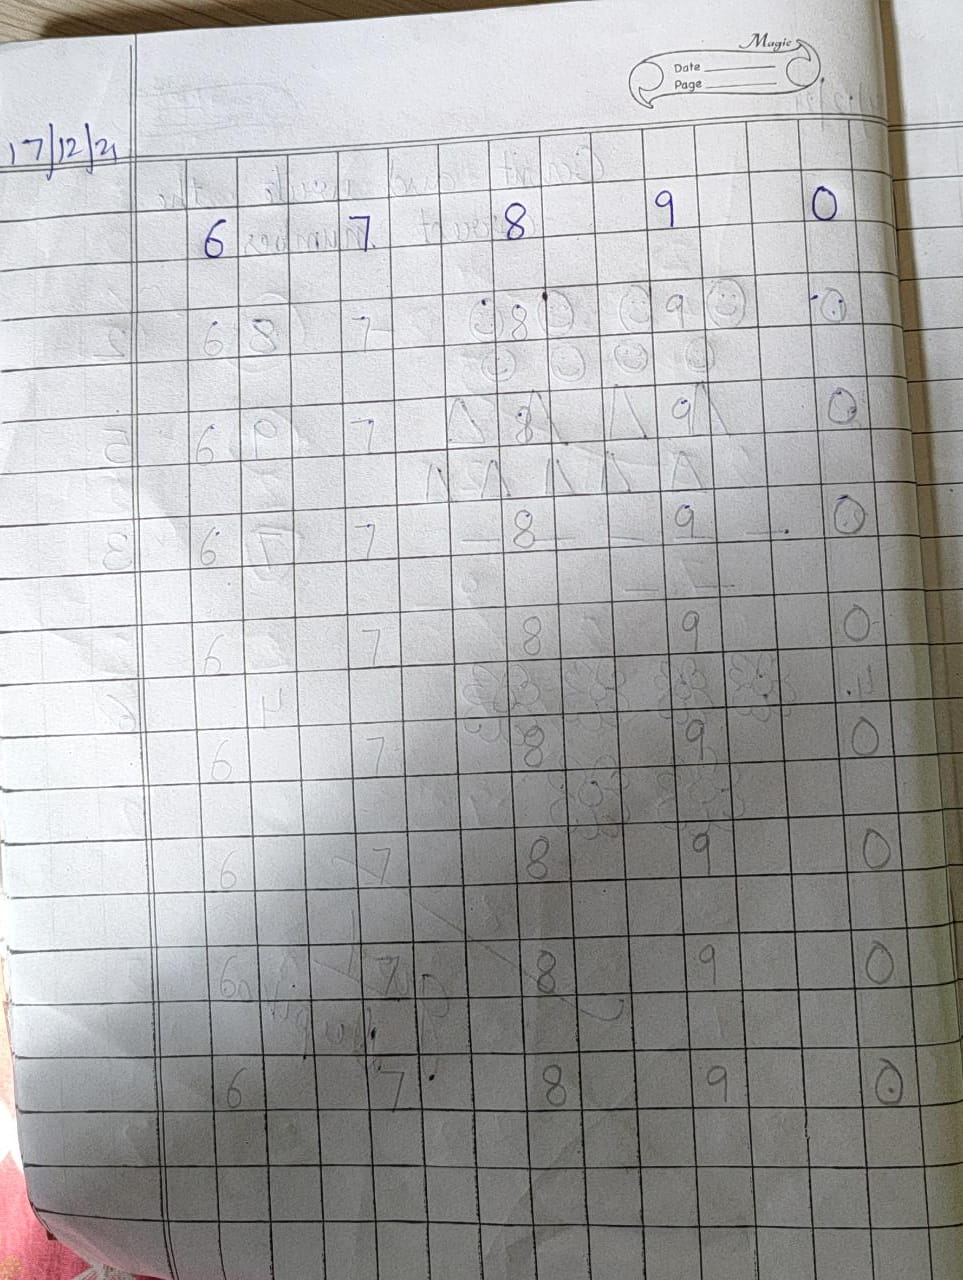 Magic
Date
Page
17/12/21
6 7 8 9 0
6 7 8 9 0
6 7 8 9 0
6 7 8 9 0
6 7 8 9 0
6 7 8 9 0
6 7 8 9 0
6 7 8 9 0
6 7 8 9 0